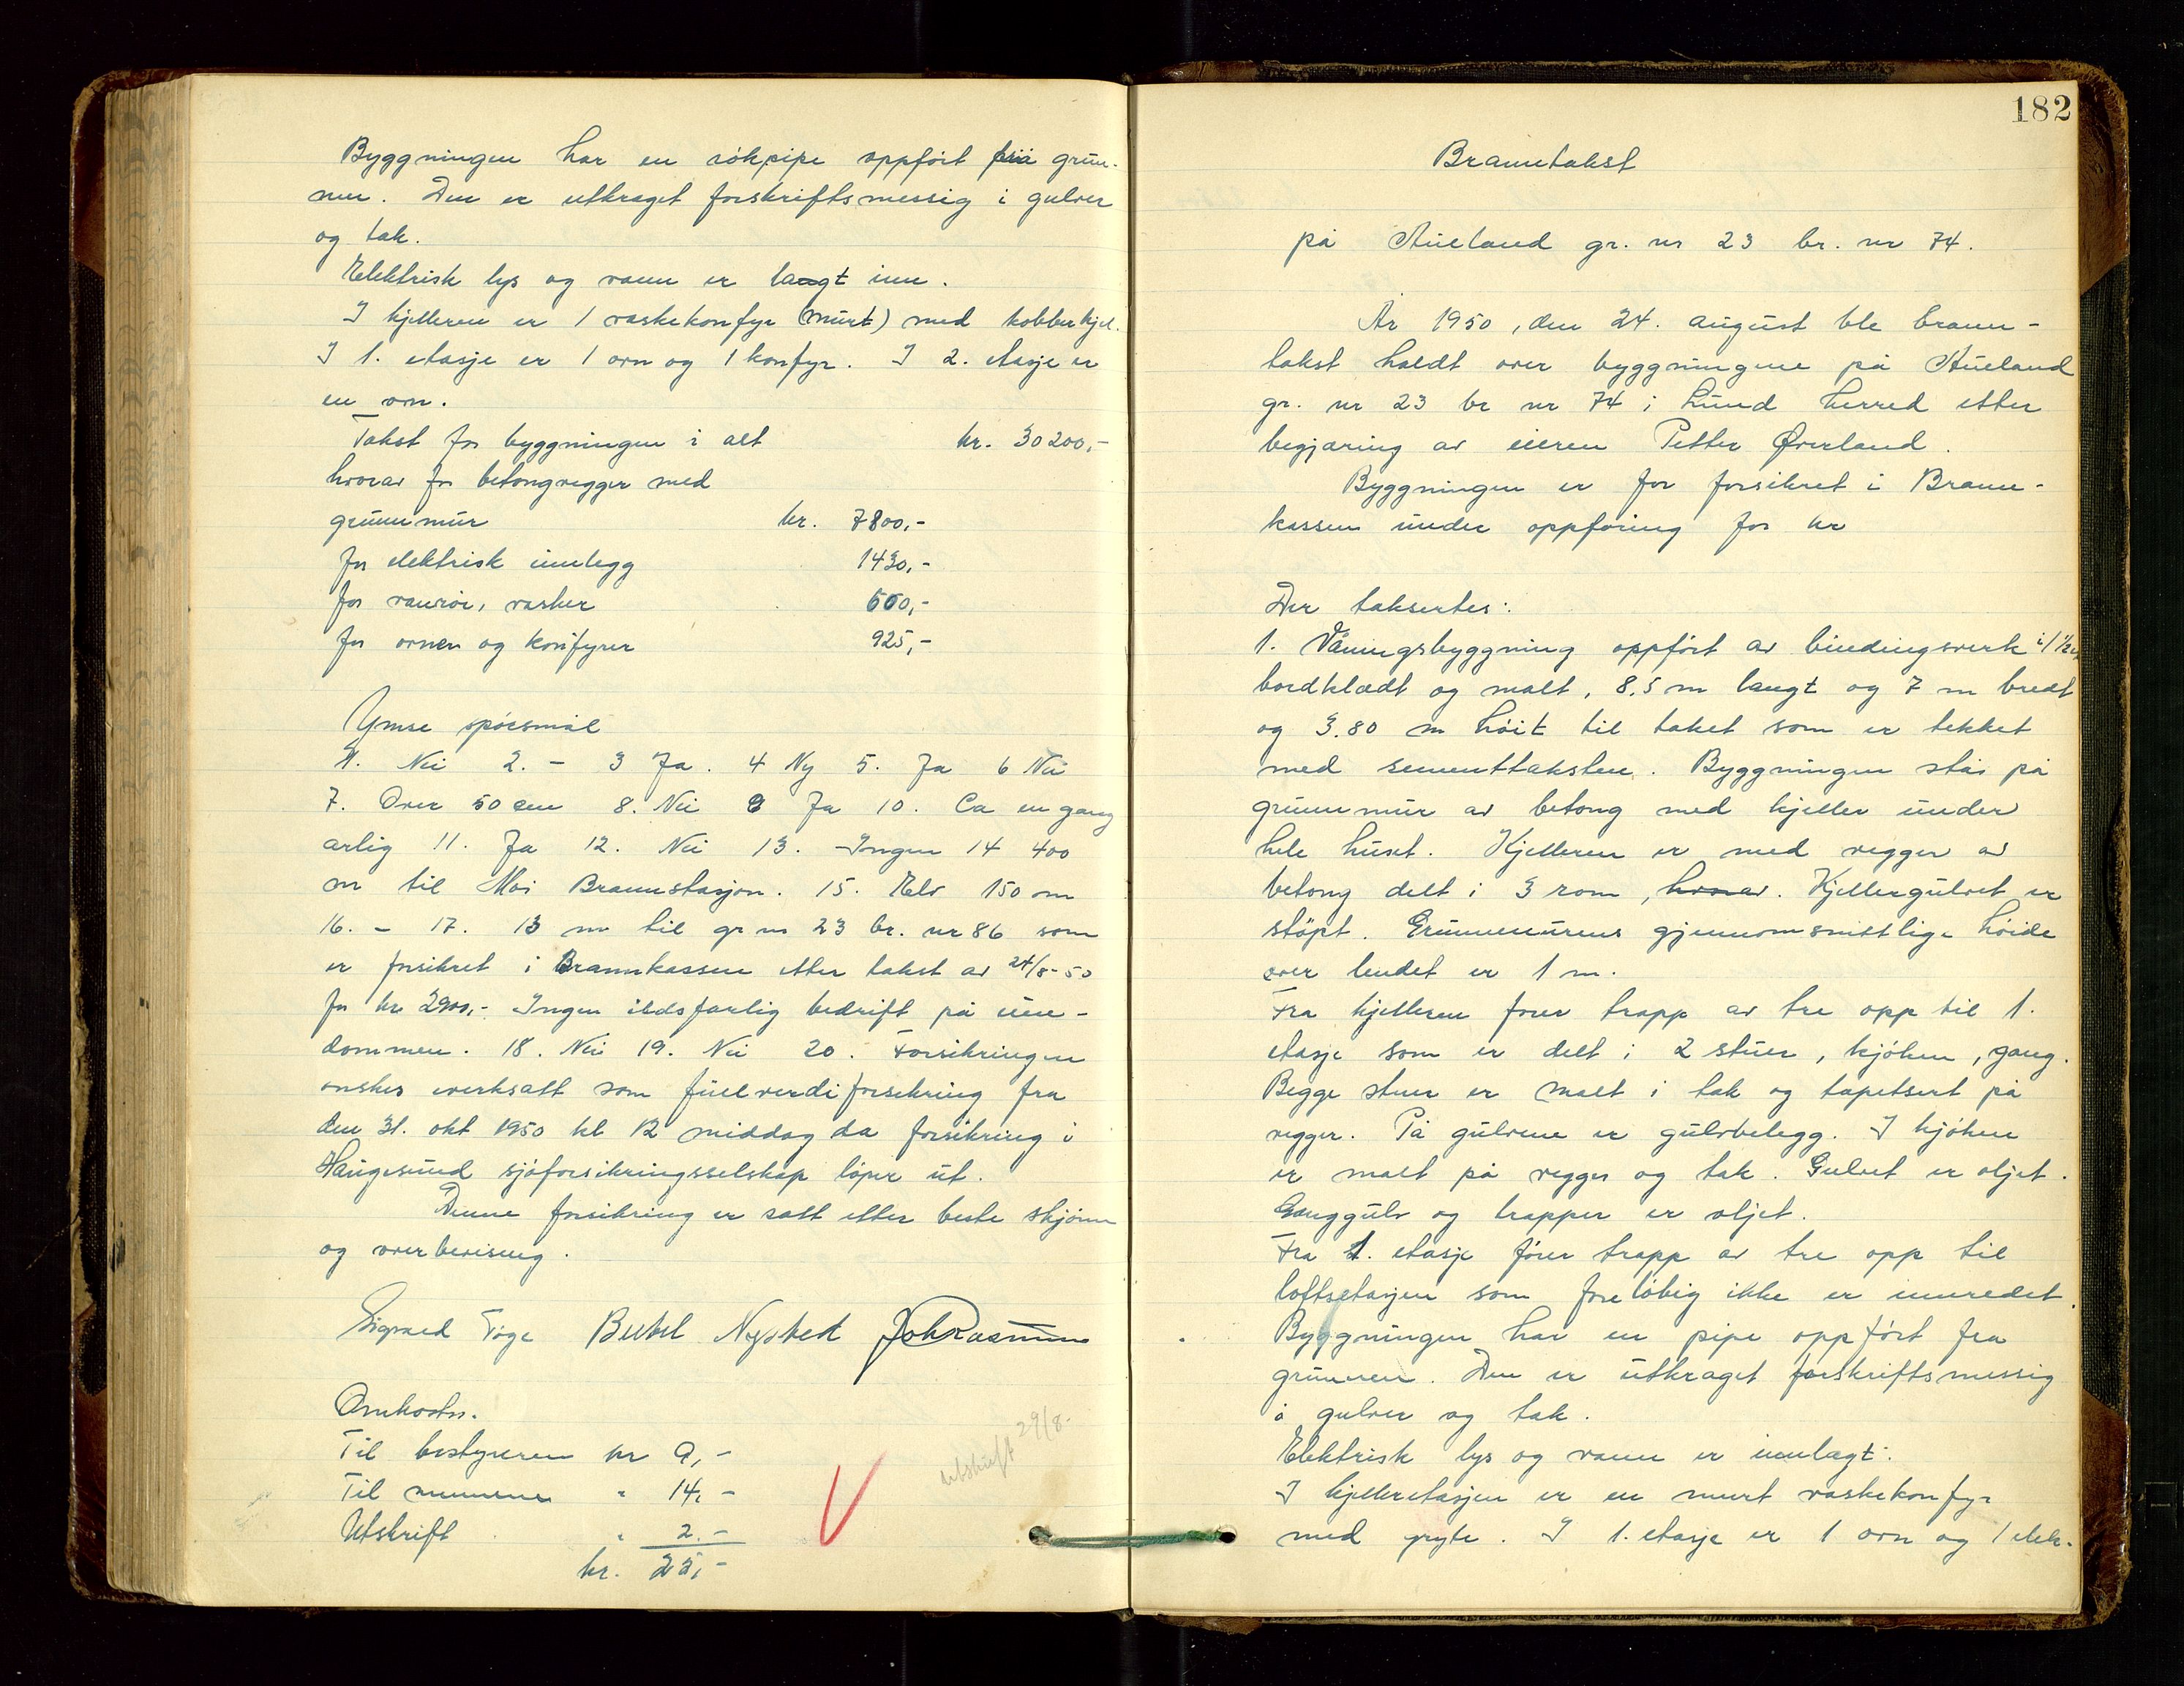 Byggningen har en rökpipe oppfört fra grun-
nen. Den er utkraget forskriftsmessig i gulver
og tak.
Elektrisk lys og vann er lagt inn.
I kjelleren er 1 vaskekonfyr (murt) med kobberkjel.
I 1. etasje er 1 ovn og 1 konfyr. I 2. etasje er
en ovn.
Takst for byggningen i alt kr. 30200,-
hvorav for betongvegger med
grunnmur kr. 7800,-
for elektrisk innlegg 1430,-
for vannrör, vasker 600,-
for ovner og konfyrer 925,-
Ymse spörsmål
1. Nei 2. - 3 Ja. 4 Ny 5. Ja 6 Nei
7. Over 50 cm 8. Nei 9 Ja 10. Ca en gang
arlig 11. Ja 12. Nei 13. Ingen 14 400
m til Moi Brannstasjon. 15. Elv 150 m
16. - 17. 13 m til gr nr 23 br. nr 86 som
er forsikret i Brannkassen etter takst av 24/8-50
for kr 2900,-. Ingen ildsfarlig bedrift på eien-
dommen. 18. Nei 19. Nei 20. Forsikringen
önskes iverksatt som fullverdiforsikring fra
den 31. okt 1950 kl 12 middag da forsikring i
Haugesund sjöforsikringsselskap löper ut.
Denne forsikring er satt etter beste skjönn
og overbevisning.
Sigvald Toge Bertel Nysted Joh Rasmussen
Omkostn.
Til bestyreren kr 9,-
Til mennene " 14,-
Utskrift " 2.-
kr. 25,-
utskrift 29/8-
182
Branntakst
på Aueland gr. nr 23 br. nr 74.
År 1950, den 24. august ble brann-
takst holdt over byggningene på Aueland
gr. nr 23 br nr 74 i Lund herred etter
begjæring av eieren Petter Överland.
Byggningen er for forsikret i Brann-
kassen under oppföring for kr
Der taksertes:
1. Våningsbyggning oppfört av bindingsverk i 1 1/2 et
bordklædt og malt, 8.5 m langt og 7 m bredt
og 3.80 m höit til taket som er tekket
med sementtaksten. Byggningen står på
grunnmur av betong med kjeller under
hele huset. Kjelleren er med vegger av
betong delt i 3 rom, hvorav. Kjellergulvet er
stöpt. Grunnmurens gjennomsnittlige höide
over lendet er 1 m.
Fra kjelleren förer trapp av tre opp til 1.
etasje som er delt i 2 stuer, kjöken, gang.
Begge stuer er malt i tak og tapetsert på
vegger. På gulvene er gulvbelegg. I kjöken
er malt på vegger og tak. Gulvet er oljet.
Ganggulv og trapper er oljet.
Fra 1. etasje förer trapp av tre opp til
loftsetasjen som forelöbig ikke er innredet.
Byggningen har en pipe oppfört fra
grunnen. Den er utkraget forskriftsmessig
i gulver og tak.
Elektrisk lys og vann er innlagt.
I kjelleretasjen er en murt vaskekonfyr
med gryte. I 1. etasje er 1 ovn og 1 elek-